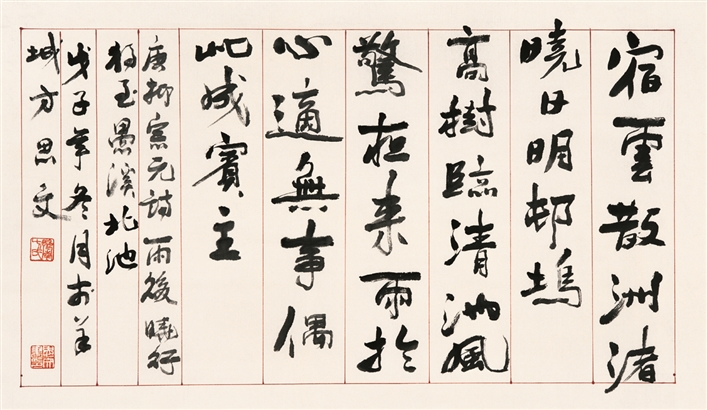 宿雲散洲渚
曉日明邨塢
高樹臨清池風
驚夜来雨於
心適無事偶
此成賓主
唐柳宗元詩雨後曉行
獨至愚溪北池
戊子年冬月於羊
城方思文